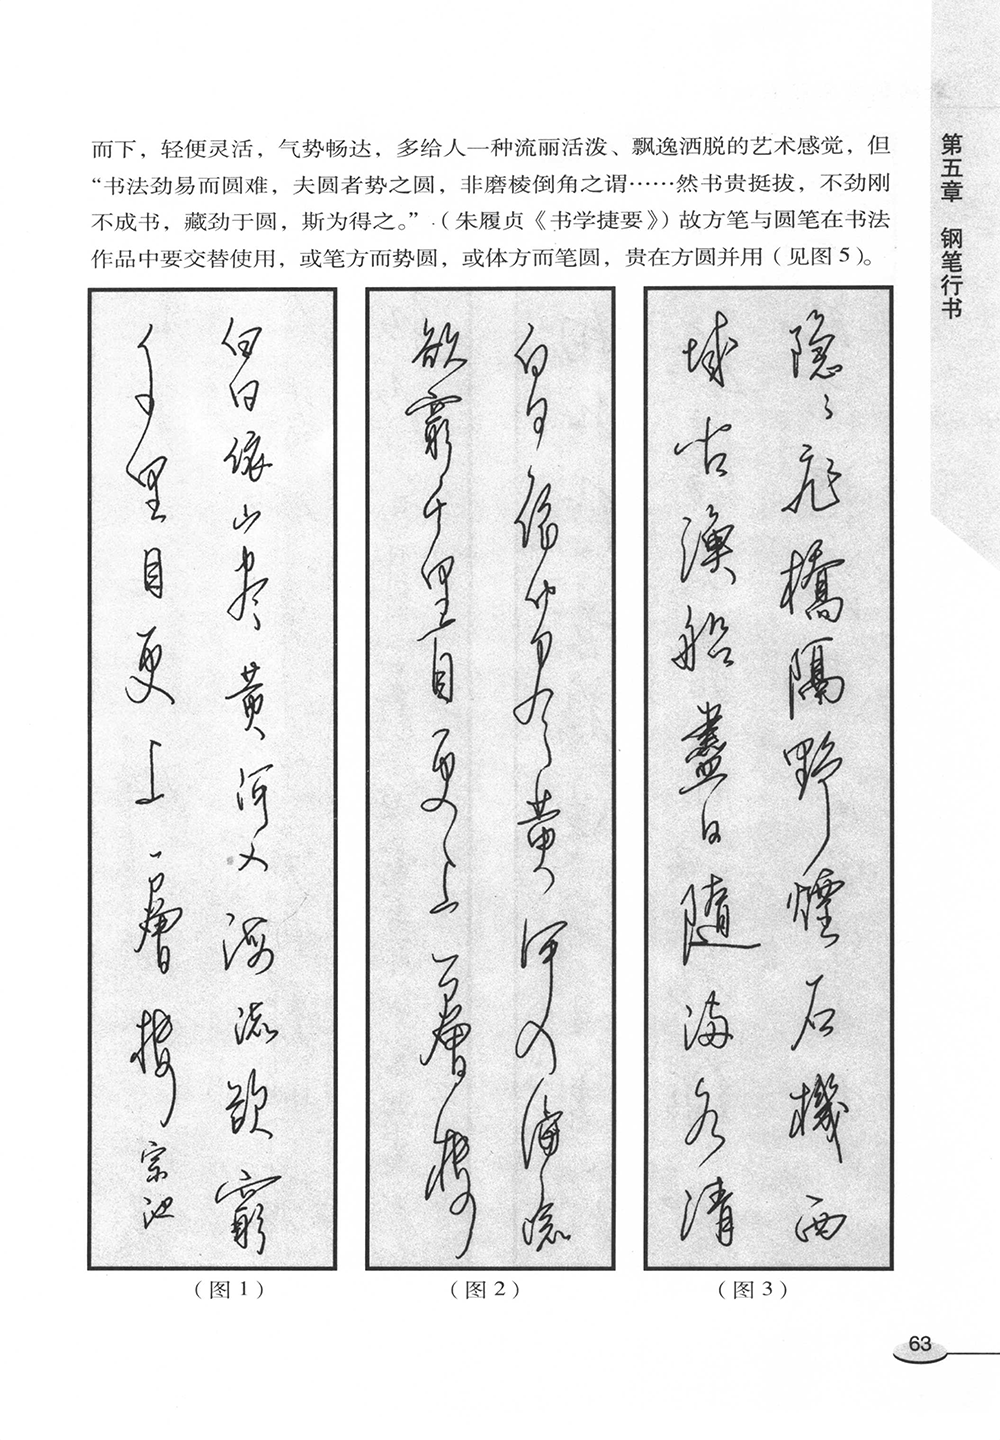 而下，轻便灵活，气势畅达，多给人一种流丽活泼、飘逸洒脱的艺术感觉，但
“书法劲易而圆难，夫圆者势之圆，非磨棱倒角之谓……然书贵挺拔，不劲刚
不成书，藏劲于圆，斯为得之。”（朱履贞《书学捷要》）故方笔与圆笔在书法
作品中要交替使用，或笔方而势圆，或体方而笔圆，贵在方圆并用（见图5）。
白日依山尽黄河入海流欲窮
千里目更上一層樓
宗池
（图1）
白日依山尽黄河入海流
欲窮千里目更上一層樓
（图2）
隐〻飛橋隔野煙石機西
漁船盡日随水清
（图3）
第五章 钢笔行书
63